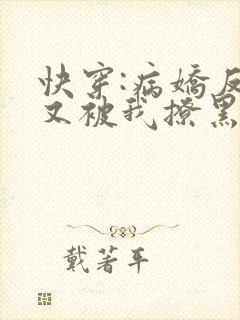 快穿:病娇反
又被我撩黑
戴著平